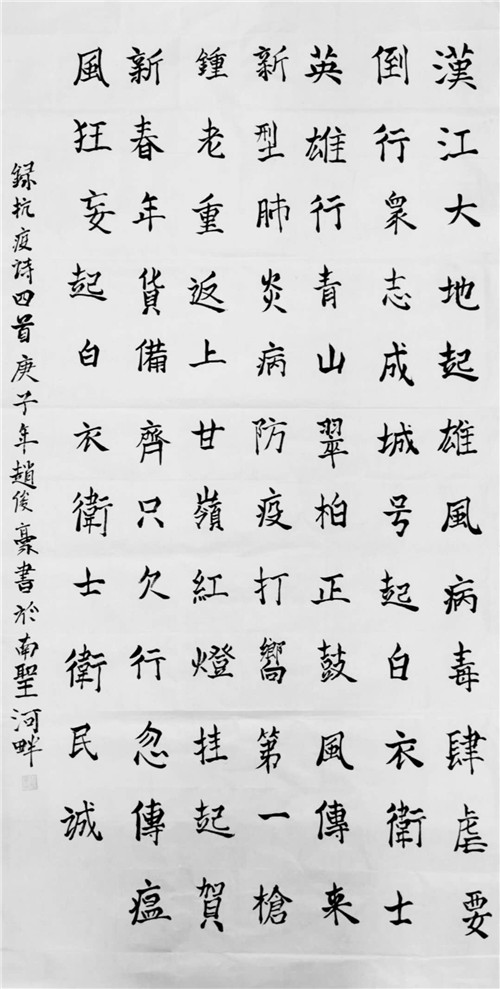 漢江大地起雄風病毒肆虐要
倒行衆志成城号起白衣衛士
英雄行青山翠柏正鼓風傳来
新型肺炎病防疫打響第一槍
鍾老重返上甘嶺紅燈挂起賀
新春年貨備齊只欠行忽傳瘟
風狂妄起白衣衛士衛民誠
録抗疫詩四首庚子年趙俊豪書於南聖河畔